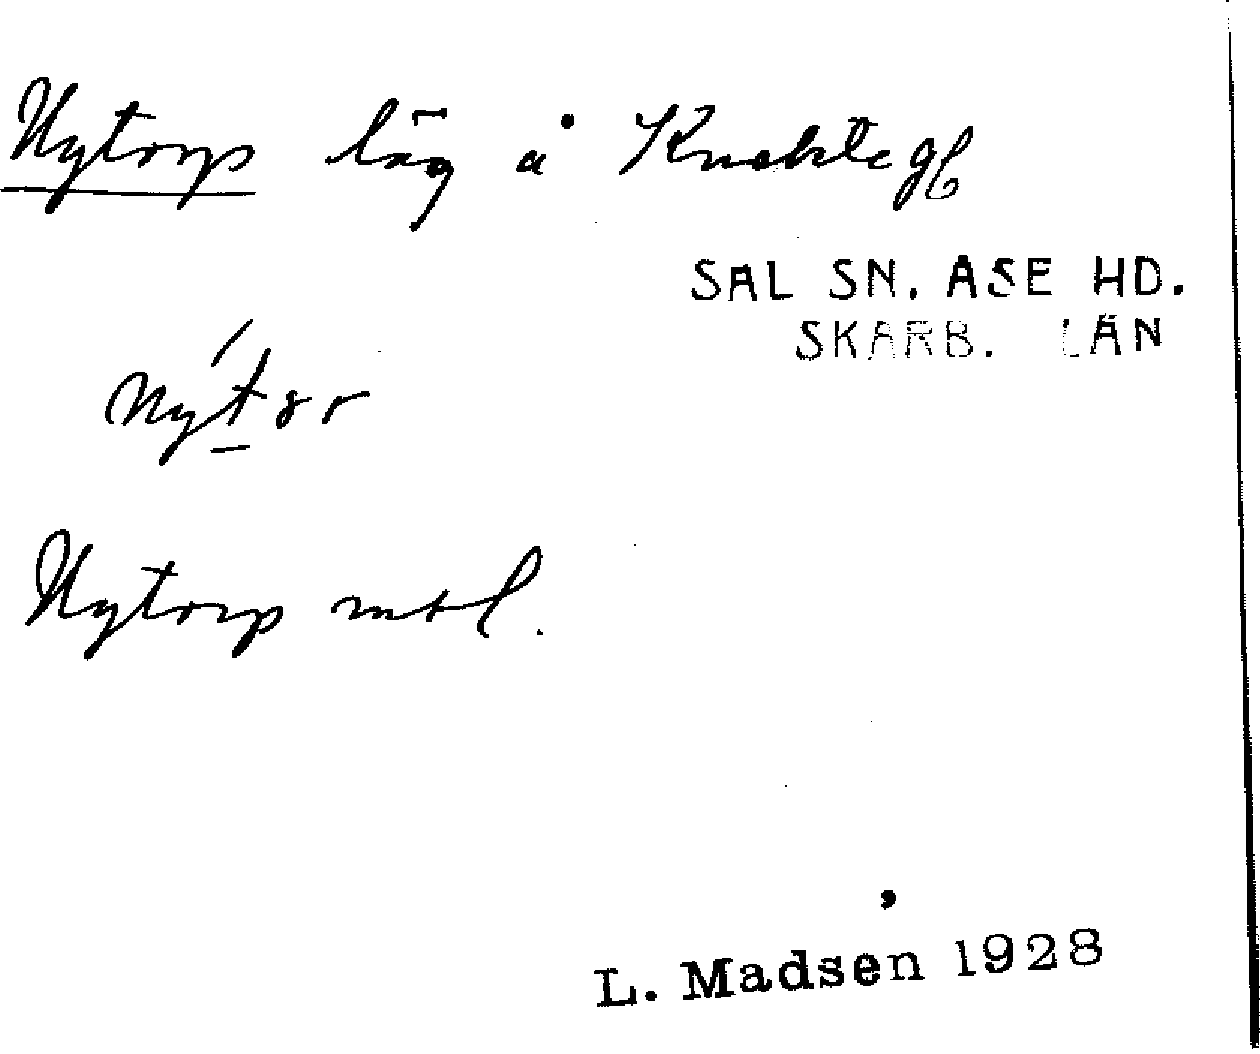 Nytorp låg å Knektegl
SAL SN. ASE HD.
SKARB. LÄN
nýtor
Nytorp mtl.
L. Madsen 1928